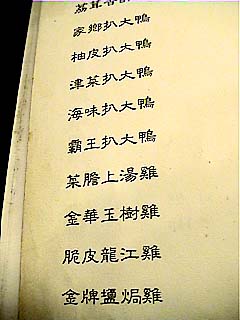 荔茸香
家鄉扒大鴨
柚皮扒大鴨
津菜扒大鴨
海味扒大鴨
霸王扒大鴨
菜膽上湯雞
金華玉樹雞
脆皮龍江雞
金牌鹽焗雞